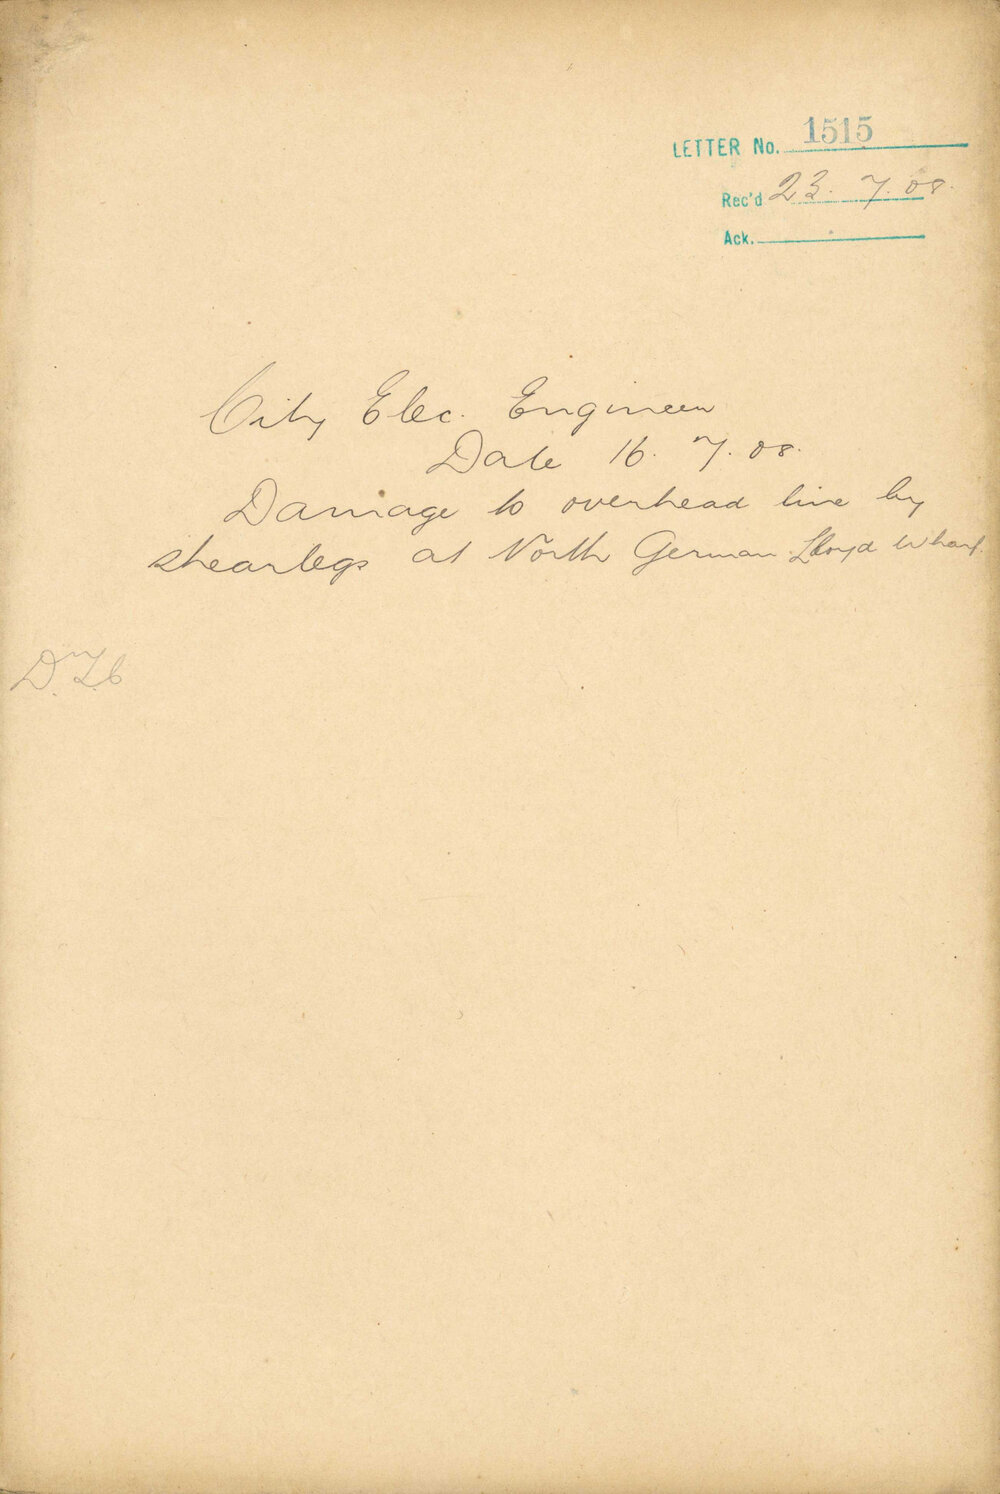 LETTER No. 1515
Rec'd 23. 7. 08.
Ack.
City Elec. Engineer
Date 16. 7. 08.
Damage to overhead line by
shearlegs at North German Lloyd Wharf.